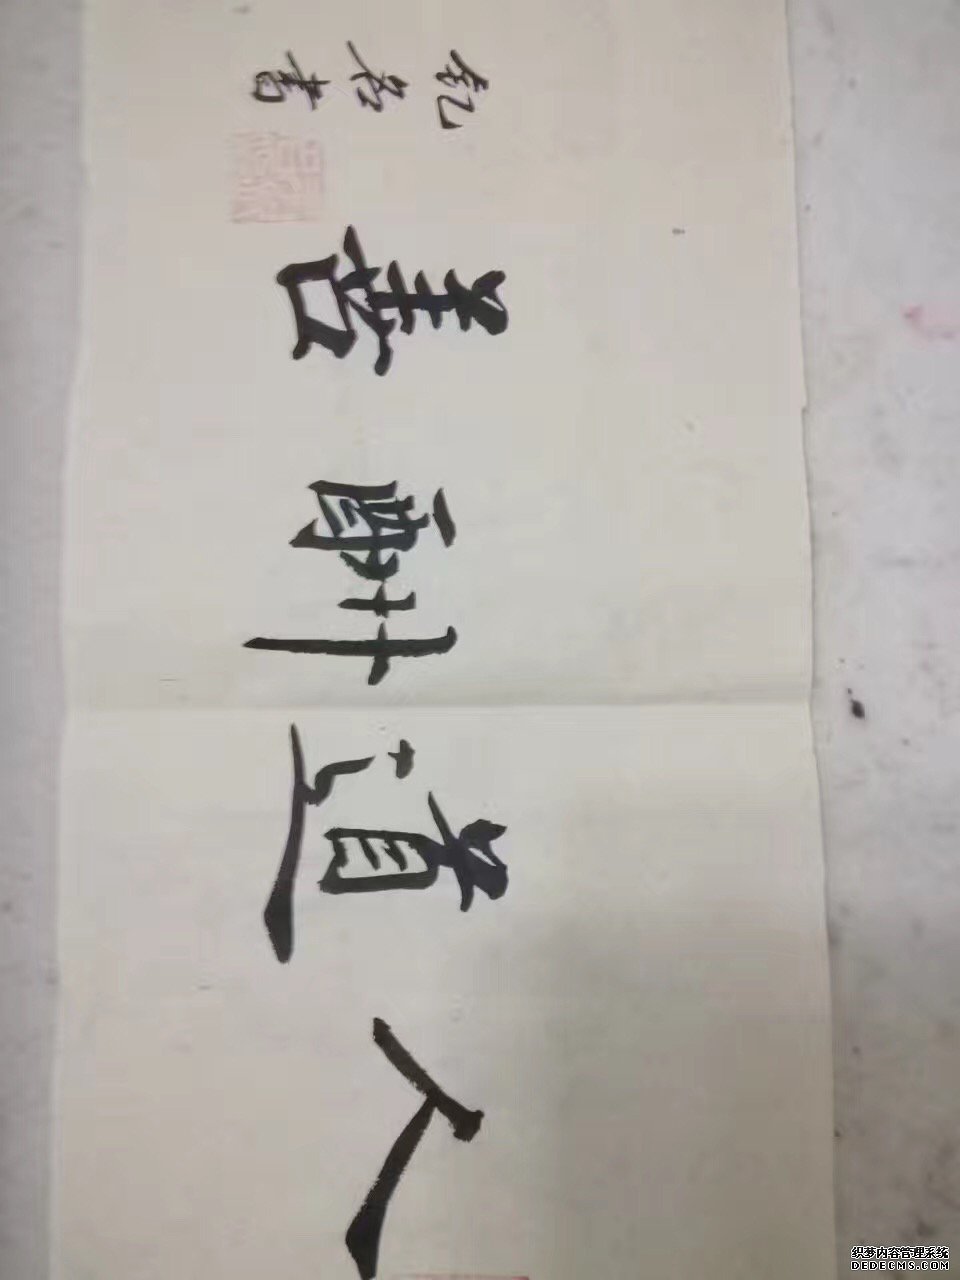 人道酬善
名書
织梦内容管理系统
DEDECMS.COM